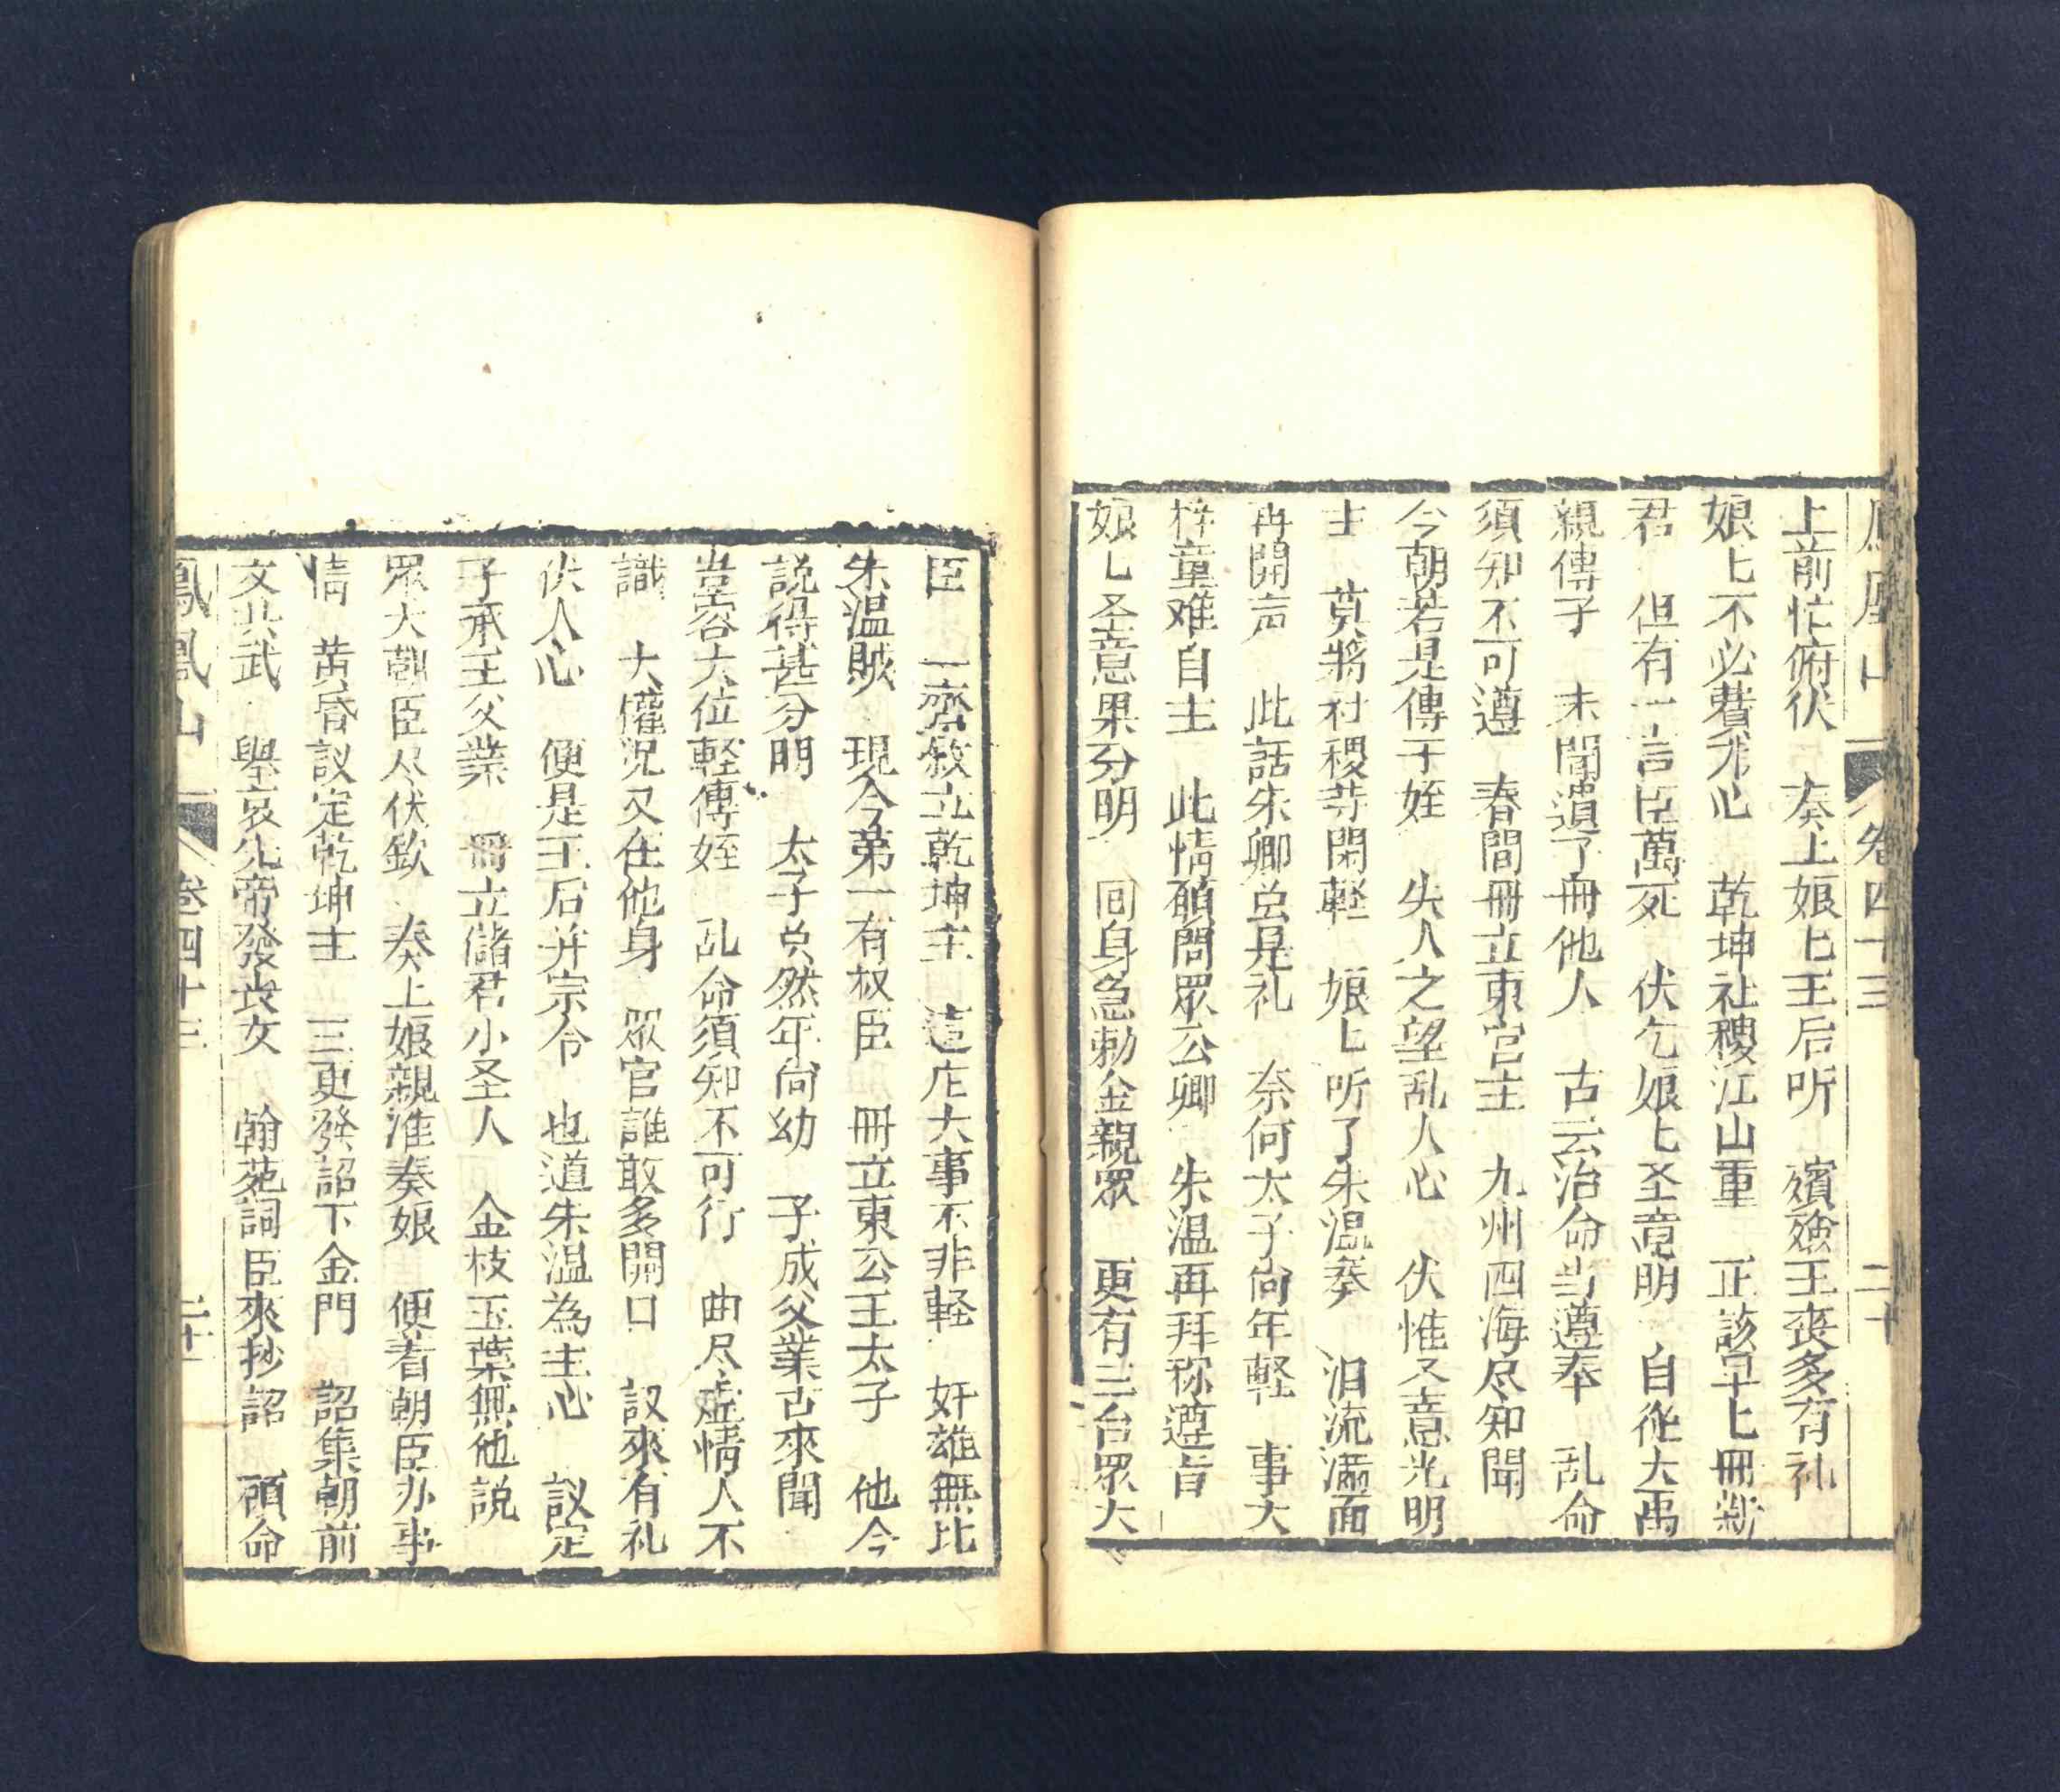 鳳凰山 卷四十三 二十
上前忙俯伏 奏上娘匕王后听 殯殮王喪多有礼
娘匕不必費尔心 乾坤社稷江山重 正該早匕冊新
君 但有一言臣萬死 伏乞娘匕圣意明 自從大禹
親傳子 未聞遺了冊他人 古云治命当遵奉 乱命
須知不可遵 春間冊立東宫主 九州四海尽知聞
今朝若是傳于姪 失人之望乱人心 伏惟圣意光明
主 莫將社稷等閑軽 娘匕听了朱温奏 泪流满面
再開声 此話朱卿总是礼 奈何太子尚年軽 事大
梓童难自主 此情碩問眾公卿 朱温再拜称遵旨
娘匕圣意果分明 回身急勅金親眾 更有三台眾大
臣 一齊敘立乾坤主 這庅大事不非軽 奸雄無比
朱温賊 現今第一有权臣 冊立東公王太子 他今
説得甚分明 太子总然年尚幼 子成父業古來聞
豈容大位軽傳姪 乱命須知不可行 曲尽虚情人不
識 大權況又在他身 眾官誰敢多開口 議來有礼
伏人心 便是王后并宗令 也道朱温為主心 議定
子承王父業 冊立儲君小圣人 金枝玉葉無他説
眾大朝臣尽伏欽 奏上娘親准奏娘 便着朝臣办事
情 黄昏議定乾坤主 三更發詔下金門 詔集朝前
文共武 舉哀先帝發喪文 翰苑詞臣來抄詔 顧命
鳳凰山 卷四十三 二十